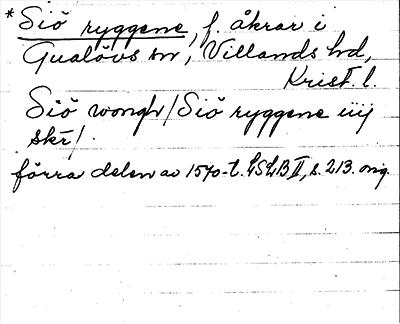 * Siö ryggene, f. åkrar i
Gualövs sn, Villands hd,
Krist. l.
Siö wongh / Siö ryggene iiij
skr /.
förra delen av 1570-t. LSLB II, s. 213. orig.